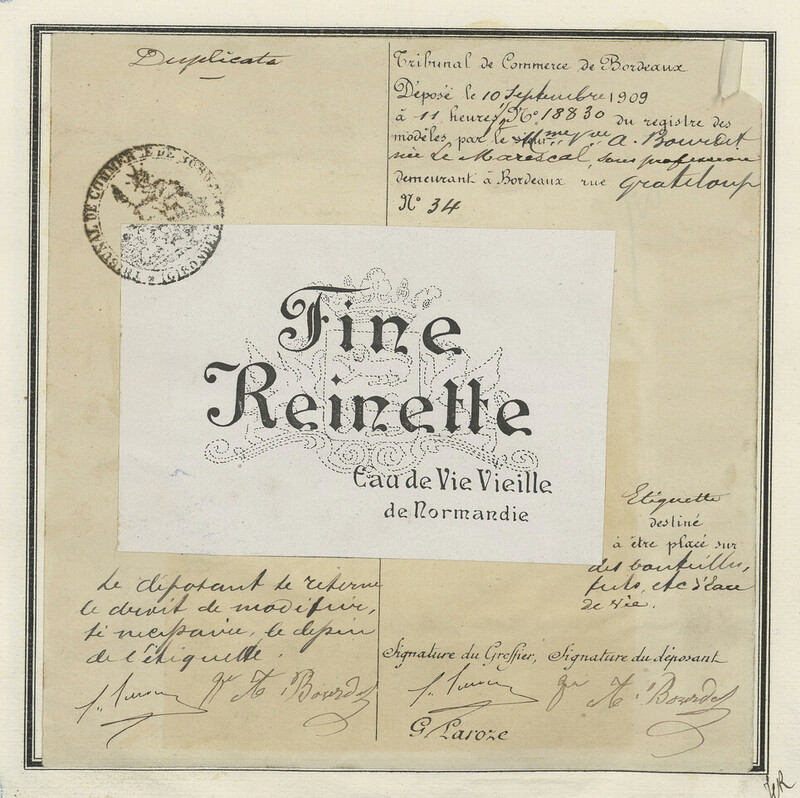 Duplicata
Tribunal de Commerce de Bordeaux
Déposé le 10 Septembre 1909
à 11 heures, N° 18830 du registre des
modèles, par le Mme Vve A. Bourdet
née Le Marescal, sans profession
demeurant à Bordeaux rue Grateloup
N° 34
TRIBUNAL DE COMMERCE DE
Fine
Reinette
Eau de Vie Vieille
de Normandie
Etiquette
destiné
à être placé sur
des bouteilles,
futs, etc d'Eau
de vie.
Le déposant se réserve
le droit de modifier,
si nécessaire, le dessin
de l'étiquette.
Signature du Greffier, Signature du déposant
Vve A. Bourdet
Vve A. Bourdet
G. Laroze